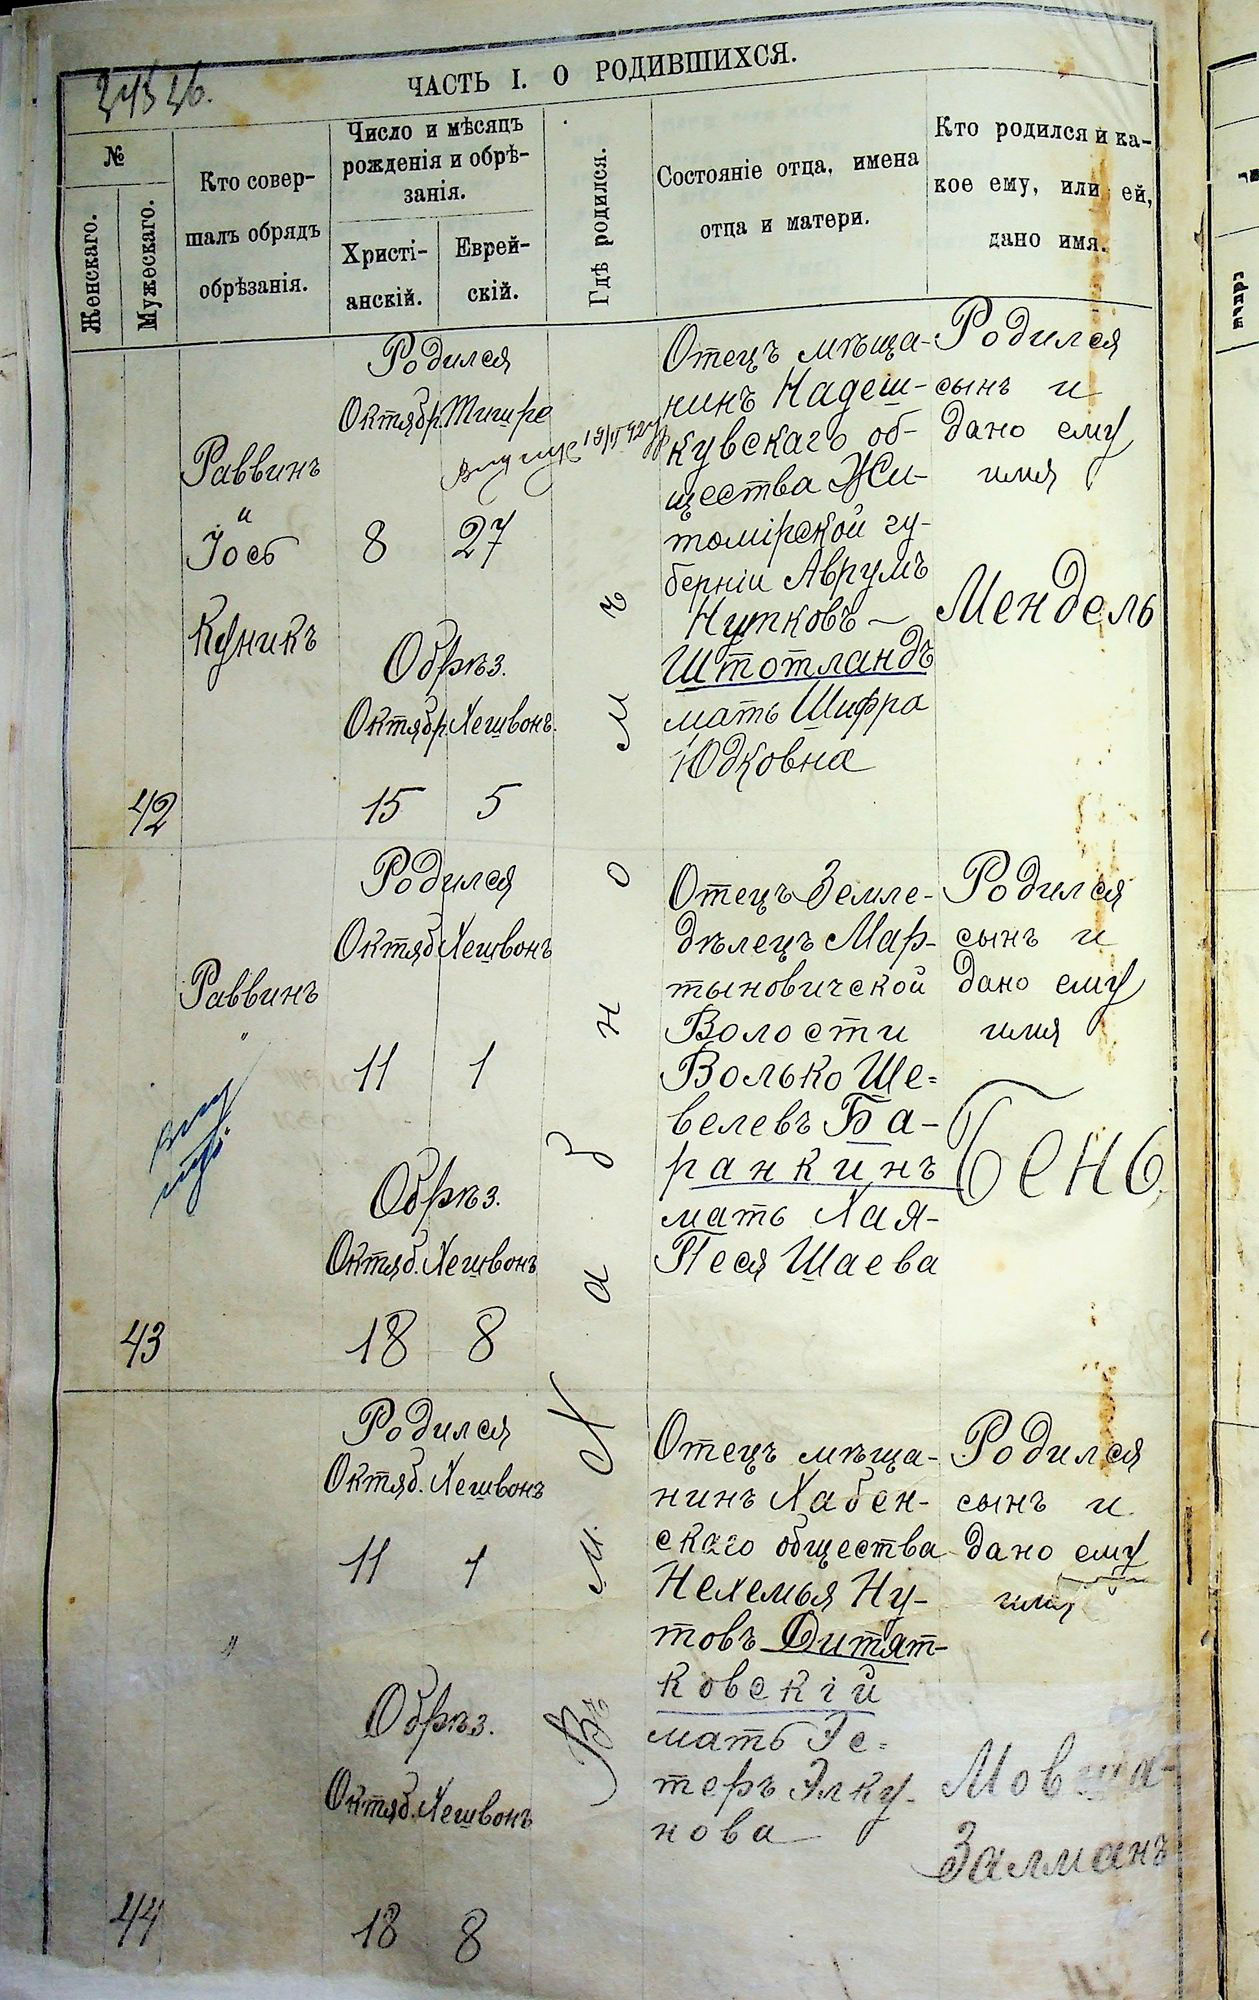 ЧАСТЬ I. О РОДИВШИХСЯ.
№
Женскаго.
Мужескаго.
Кто совер-
шалъ обрядъ
обрѣзанія.
Число и мѣсяцъ
рожденія и обрѣ-
занія.
Христі-
анскій.
Еврей-
скій.
Гдѣ родился.
Состояніе отца, имена
отца и матери.
Кто родился и ка-
кое ему, или ей,
дано имя.
42
Раввинъ
и
Іось
Куникъ
Родился
Октябр. Тишре
8 27
Обрѣз.
Октябр. Хешвонъ.
15 5
Отецъ мѣща-
нинъ
кувскаго об-
щества Жи-
томірской гу-
берніи Аврумъ
Нутковъ —
Штотландъ
мать Шифра
Юдковна
Родился
сынъ и
дано ему
имя
Мендель
43
Раввинъ
"
Родился
Октяб. Хешвонъ
11 1
Обрѣз.
Октяб. Хешвонъ
18 8
Отецъ Земле-
дѣлецъ Мар-
тыновической
Волости
Волько Ше=
велевъ Ба-
ранкинъ
мать Хая-
Песя Шаева
Родился
сынъ и
дано ему
имя
Бень
44
"
Родился
Октяб. Хешвонъ
11 1
Обрѣз.
Октяб. Хешвонъ
18 8
Въ м. Хазно
Отецъ мѣща-
нинъ Хабен-
скаго общества
Нехемья Ну-
товъ Дитят-
ковскій
мать Ге=
теръ Элку-
нова
Родился
сынъ и
дано ему
имя
Мовша-
Залманъ